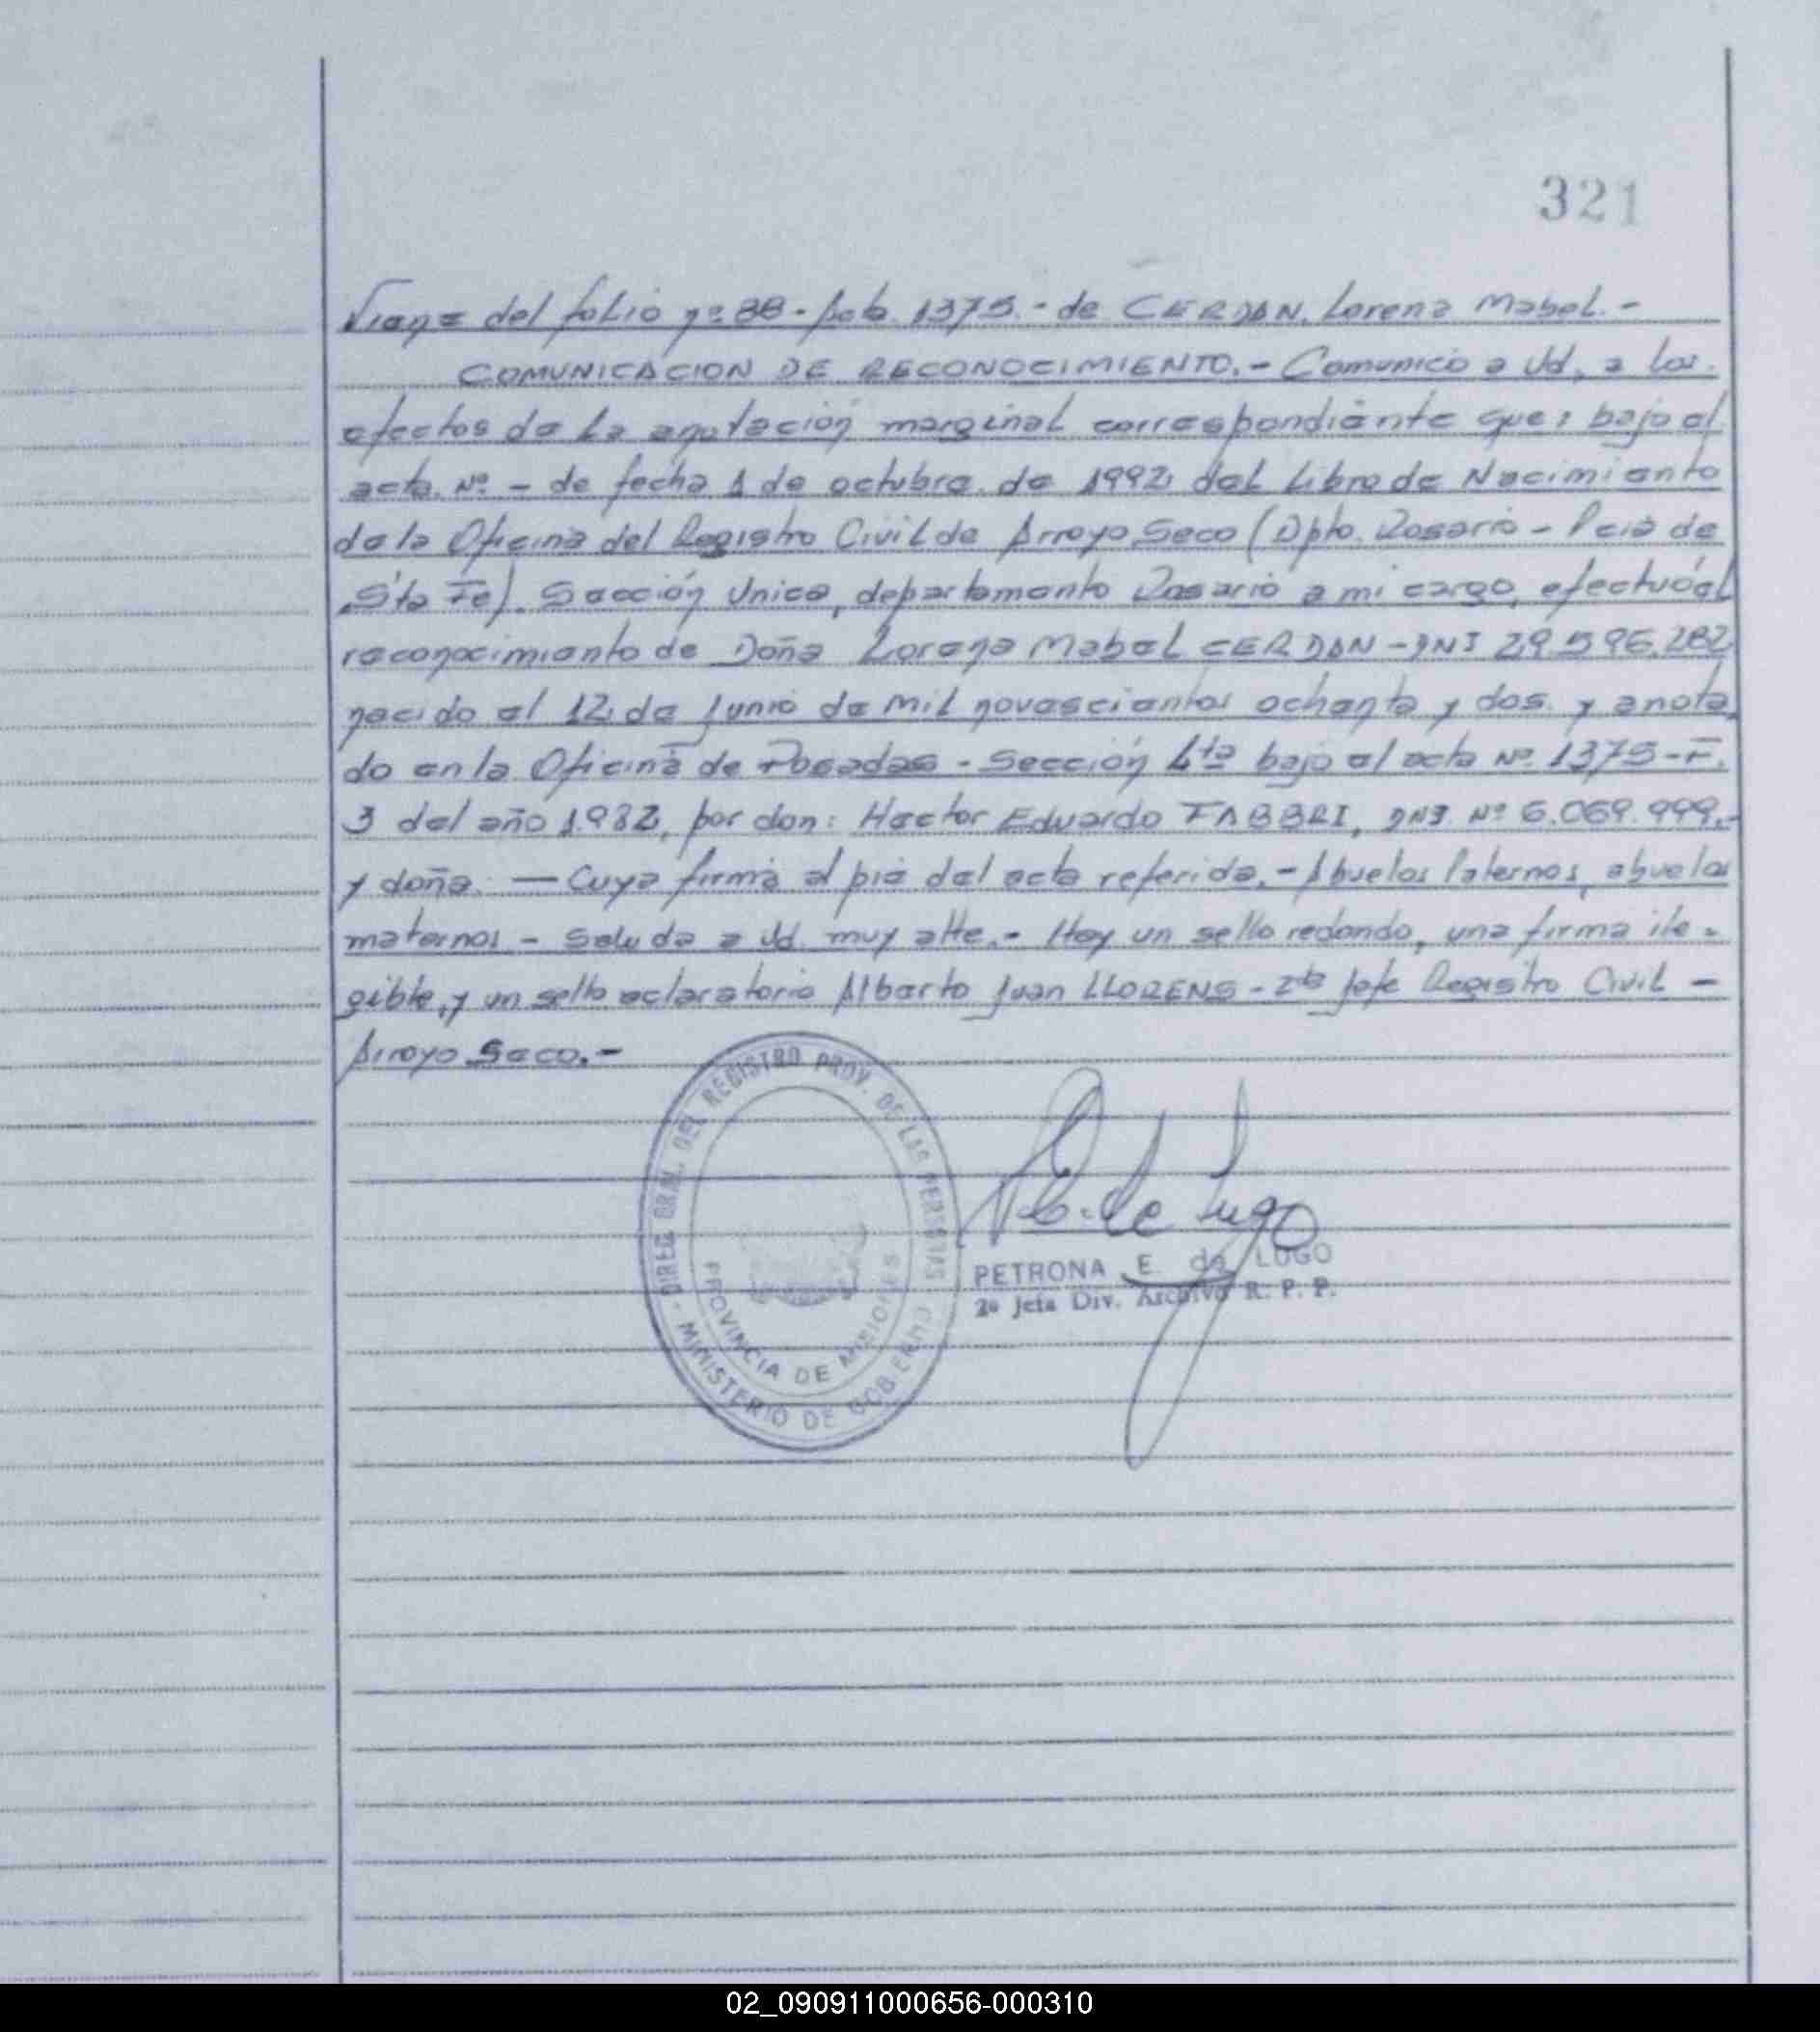 321
Viene del folio nº 88 - Acta 1375.- de CERDAN, Lorena Mabel.-
COMUNICACION DE RECONOCIMIENTO.- Comunico a Ud, a los
efectos de la anotación marginal correspondiente que: bajo el
acta Nº - de fecha 1 de octubre de 1992 del Libro de Nacimiento
de la Oficina del Registro Civil de Arroyo Seco (Dpto. Rosario - Pcia de
Sta Fe). Sección Unica, departamento Rosario a mi cargo, efectuó el
reconocimiento de Doña Lorena Mabel CERDAN - DNI 29.596.282
nacido el 12 de Junio de mil novescientos ochenta y dos y anota
do en la Oficina de Posadas - Sección 4ta bajo el acta Nº 1375-F.
3 del año 1982, por don: Hector Eduardo FABBRI, DNI Nº 6.069.999.-
y doña. — Cuya firma al pie del acta referida.- Abuelos Paternos, abuelos
maternos - Saluda a Ud. muy atte.- Hay un sello redondo, una firma ile-
gible, y un sello aclaratorio Alberto Juan LLORENS - 2do Jefe Registro Civil -
Arroyo Seco.-
DIREC. GRAL. DEL REGISTRO PROV. DE LAS PERSONAS
MINISTERIO DE GOBIERNO
PROVINCIA DE MISIONES
de Lugo
PETRONA E. de LUGO
2º Jefa Div. Archivo R. P. P.
02_090911000656-000310